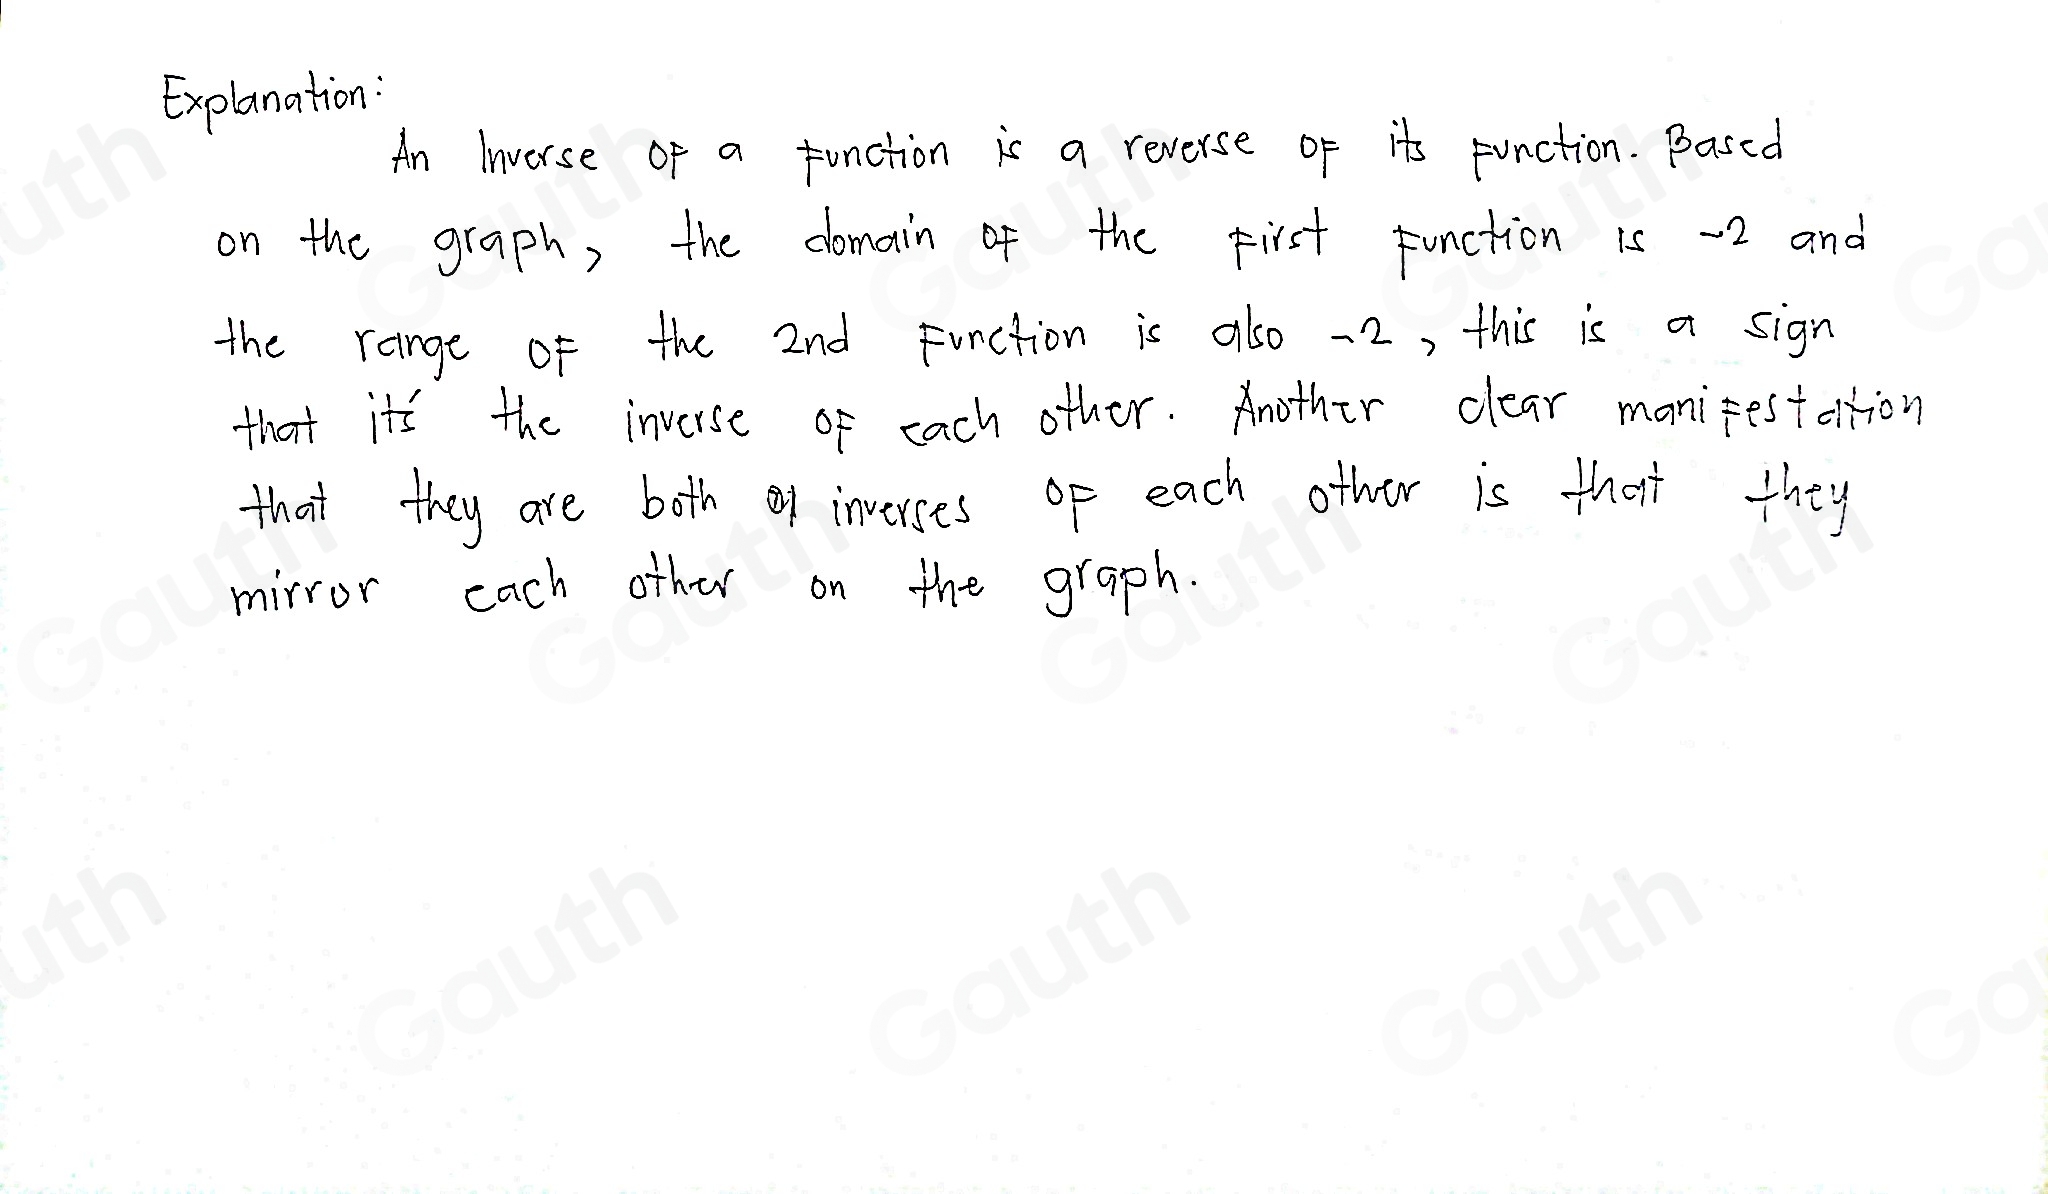 Explanation:
An Inverse of a function is a reverse of its function. Based
on the graph, the domain of the first function is -2 and
the range of the 2nd function is also -2, this is a sign
that it's the inverse of each other. Another clear manifestation
that they are both inverses of each other is that they
mirror each other on the graph.